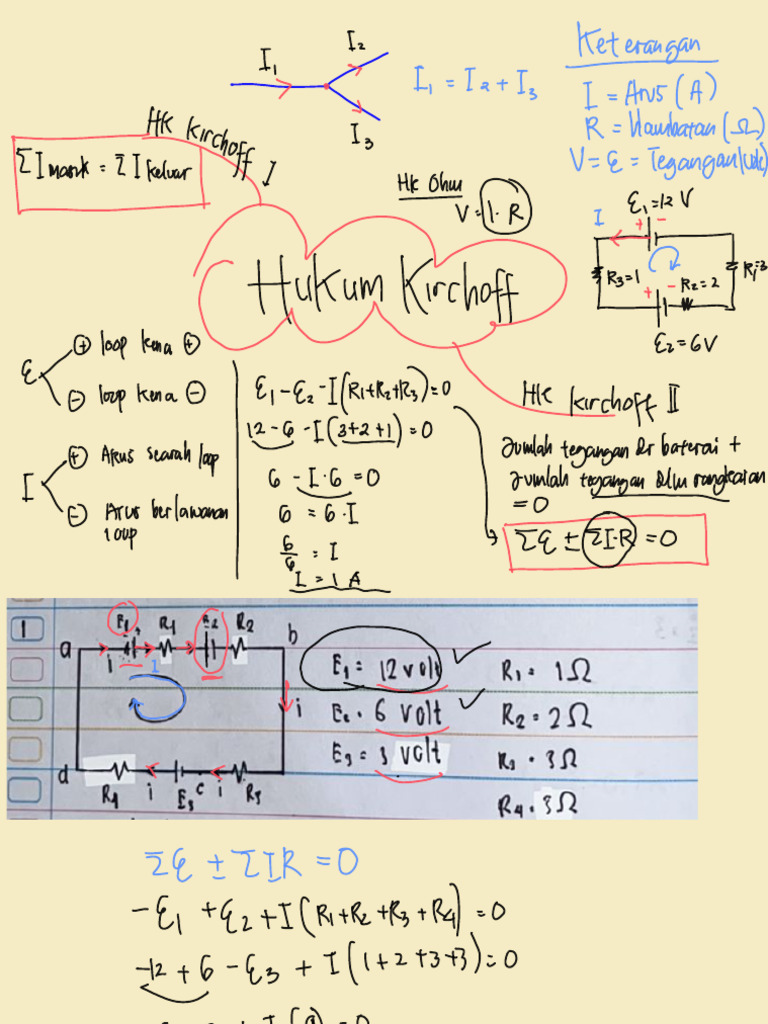 I₁
I₂
I₃
I₁ = I₂ + I₃
Keterangan
I = Arus (A)
R = Hambatan (Ω)
V = ε = Tegangan (Volt)
HK Kirchoff I
ΣI masuk = ΣI keluar
Hk Ohm
V = I . R
Hukum Kirchoff
ε₁=12 V
I
+ -
R₃=1
+ -
R₂=2
ε₂=6V
ε
⊕ loop kena ⊕
⊖ loop kena ⊖
I
⊕ Arus searah loop
⊖ Arus berlawanan
loop
ε₁-ε₂-I(R₁+R₂+R₃)=0
12-6-I(3+2+1)=0
6 - I.6 = 0
6 = 6.I
6/6 = I
I = 1 A
HK Kirchoff II
Jumlah tegangan dr baterai +
Jumlah tegangan dlm rangkaian
= 0
Σε ± ΣI.R = 0
1
a
E₁
R₁
E2
R₂
b
i
i
d
R4
i
E₃
c
i
R₃
E₁ = 12 volt
E₂ = 6 volt
E₃ = 3 volt
R₁ = 1Ω
R₂ = 2Ω
R₃ = 3Ω
R₄ = 3Ω
Σε ± ΣIR = 0
-ε₁ + ε₂ + I(R₁+R₂+R₃+R₄) = 0
-12 + 6 - ε₃ + I(1+2+3+3) = 0